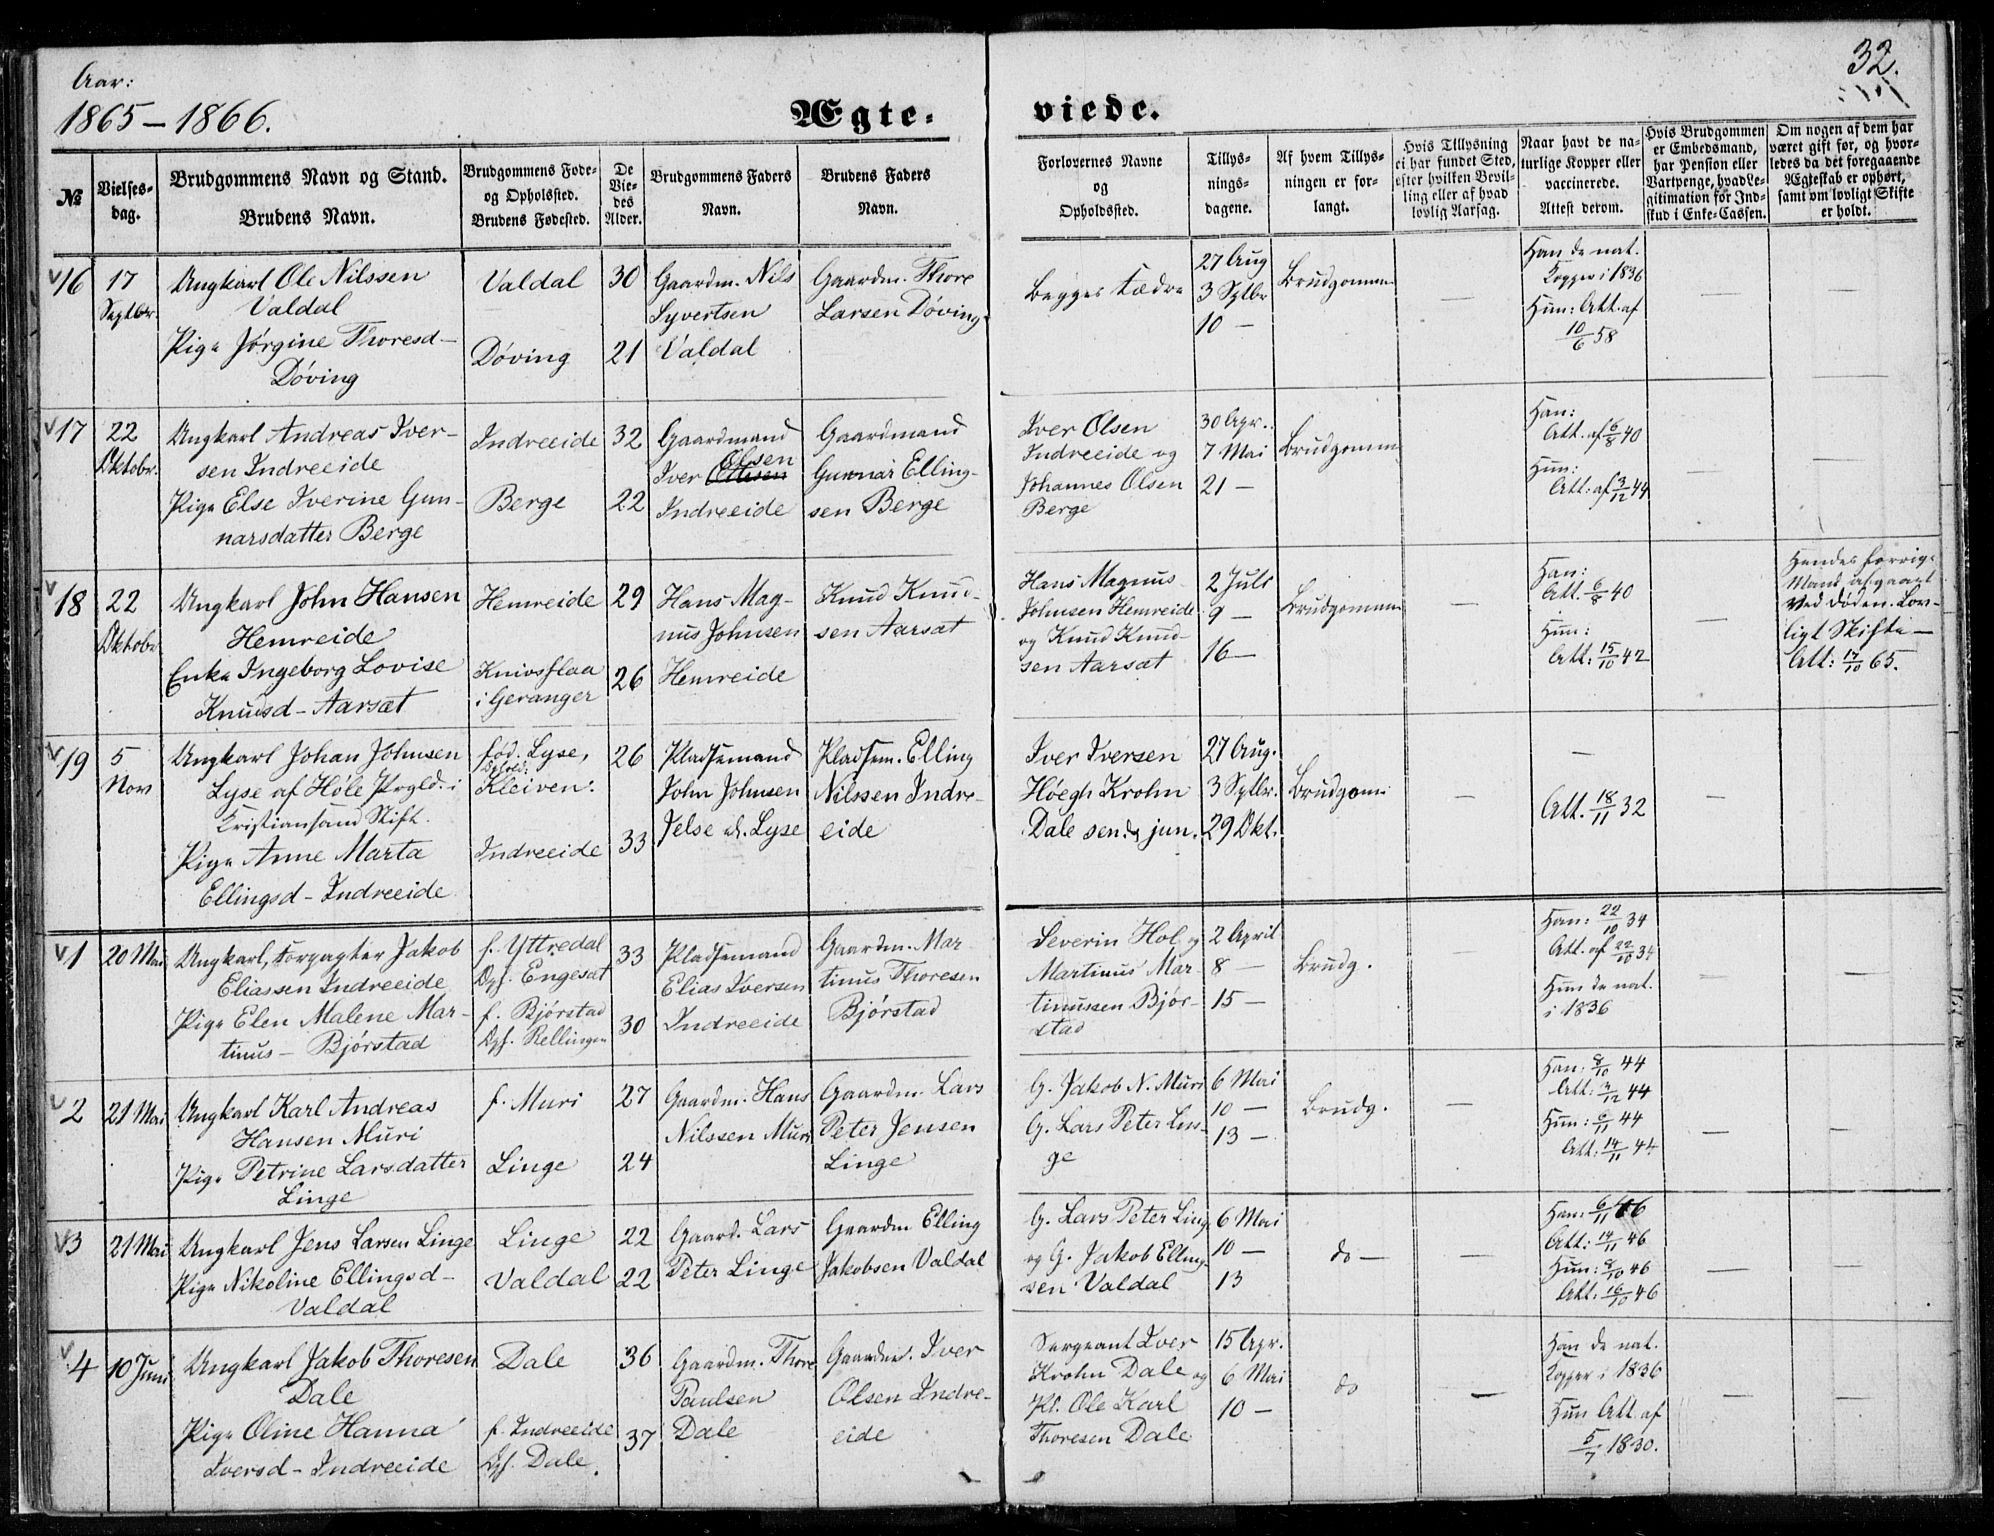 Aar:
1865-1866.
32.
Ægte-
viede.
№
Vielses-
dag.
Brudgommens Navn og Stand.
Brudens Navn.
Brudgommens Føde-
og Opholssted.
Brudens Fødested.
De
Vie-
des
Alder.
Brudgommens Faders
Navn.
Brudens Faders
Navn.
Forlovernes Navne
og
Opholdssted.
Tillys-
nings-
dagene.
Af hvem Tillys-
ningen er for-
langt.
Hvis Tillysning
ei har fundet Sted,
efter hvilken Bevil-
ling eller af hvad
lovlig Aarsag.
Naar havt de na-
turlige Kopper eller
vaccinerede.
Attest derom.
Hvis Brudgommen
er Embedsmand,
har Pension eller
Vartpenge, hvad Le-
gitimation for Ind-
skud i Enke-Cassen.
Om nogen af dem har
været gift før, og hvor-
ledes da det foregaaende
Ægteskab er ophørt,
samt om lovligt Skifte
er holdt.
16
17
Septbr.
Ungkarl Ole Nilssen
Valdal
Pige Jørgine Thoresd-
Døving
Valdal
Døving
30
21
Gaardm. Nils
Syvertsen
Valdal
Gaardm. Thore
Larsen Døving
Begges Fædre
27 Aug
3 Sptbr
10 -
Brudgommen
-
Han de nat.
Kopper i 1836
Hun: Att. af
10/6 58
-
-
17
22
Oktobr.
Ungkarl Andreas Iver-
sen Indreeide
Pige Else Iverine Gun-
narsdatter Berge
Indreeide
Berge
32
22
Gaardmand
Olsen
Iver
Indreeide
Gaardmand
Gunnar Elling-
sen Berge
Iver Olsen
Indreeide og
Johannes Olsen
Berge
30 Apr.
7 Mai
21 -
Brudgomm
Han:
Att. af 6/8 40
Hun:
Att: af 3/12 44
-
-
18
22
Oktobr
Ungkarl John Hansen
Hemreide
Enke Ingeborg Lovise
Knudsd- Aarsæt
Hemreide
Knivsflaa
i Geranger
29
26
Hans Mag-
nus Johnsen
Hemreide
Knud Knud-
sen Aarsæt
Hans Magnus
Johnsen Hemreide
og Knud Knud-
sen Aarsæt
2 Juli
9 -
16 -
Brudgommen
-
Han:
Att. 6/8 40
Hun:
Att: 15/10 42
-
Hendes forrige
Mand afgaaet
ved Døden. Lov-
ligt Skifte -
Att: 17/10 65.
19
5
Nov
Ungkarl Johan Johnsen
Lyse af Høle Prgld. i
Kristiansand Stift.
Pige Anne Marta
Ellingsd- Indreeide
fød. Lyse,
Kleiven:
Indreeide
26
33
Pladsemand
John Johnsen
Jelse Lyse
Pladsem. Elling
Nilssen Indre-
eide
Iver Iversen
Høegh Krohn
Dale sen. og jun.
27 Aug.
3 Sptbr.
29 Okt.
Brudgom
-
-
Att. 18/11 32
-
1
20 Mai
Ungkarl, Forpagter Jakob
Eliassen Indreeide
Pige Elen Malene Mar-
tinus- Bjørstad
f. Yttredal
Opf. Engesæt
f. Bjørstad
Opf. Rellingen
33
30
Pladsemand
Elias Iversen
Indreeide
Gaardm. Mar
tinus Thoresen
Bjørstad
Severin Hol og
Martinus Mar-
tinussen Bjør-
stad
2 April
8 -
15 -
Brudg.
-
Han: 22/10 34
Att. af 22/10 34
Hun de nat.
i 1836
-
-
2
21 Mai
Ungkarl Karl Andreas
Hansen Muri
Pige Petrine Larsdatter
Linge
f. Muri
Linge
27
24
Gaardm. Hans
Nilssen Muri
Gaardm. Lars
Peter Jensen
Linge
G. Jakob N. Muri
G. Lars Peter Lin-
ge
6 Mai
10 -
13 -
Brudg.
-
Han: 8/10 44
Att: 3/12 44
Hun: 6/11 44
Att: 14/11 44
-
-
3
21 Mai
Ungkarl Jens Larsen Linge
Pige Nikoline Ellingsd-
Valdal
Linge
Valdal
22
22
Gaard. Lars
Peter Linge
Gaardm Elling
Jakobsen Valdal
G. Lars Peter Ling
og G. Jakob Elling-
sen Valdal
6 Mai
10 -
13
do -
-
Han: 6/11 46
Att: 14/11 46
Hun: 8/10 46
Att: 16/10 46
-
-
4
10 Juni
Ungkarl Jakob Thoresen
Dale
Pige Oline Hanna
Iversd- Indreeide
Dale
f. Indreeide
Opf. Dale.
36
37
Gaardm. Thore
Paulsen
Dale
Gaardm. Iver
Olsen Indre-
eide
Sergeant Iver
Krohn Dale og
Pl. Ole Karl
Thoresen Dale
15 Apr.
6 Mai
10 -
do
-
Han de nat.
Kopper i 1836
Hun Att. af
5/7 1830.
-
-